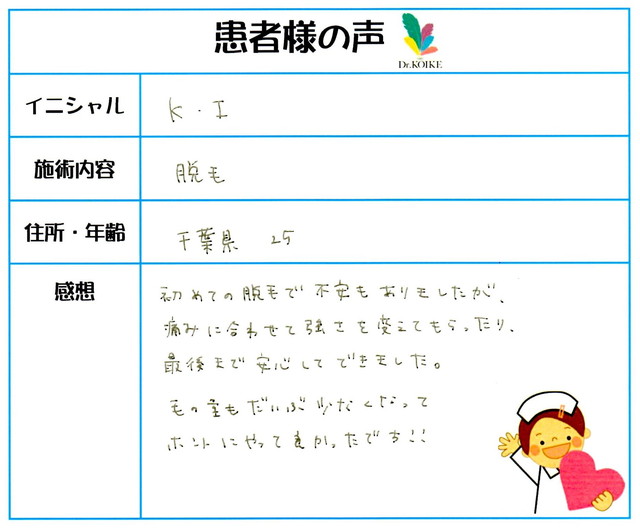 患者様の声
Dr.KOIKE
イニシャル
K・I
施術内容
脱毛
住所・年齢
千葉県 25
感想
初めての脱毛で不安もありましたが、
痛みに合わせて強さを変えてもらったり、
最後まで安心してできました。
毛の量もだいぶ少なくなって
ホントにやって良かったです!!